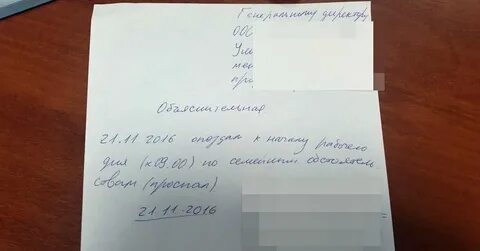 Генеральному директору
ООО
Объяснительная
21.11 2016 опоздал к началу рабочего
дня (к 09.00) по семейным обстоятель
ствам (проспал)
21.11.2016